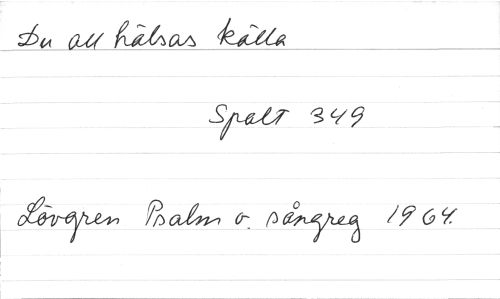 Du all hälsas källa
Spalt 349
Lövgren Psalm o. sångreg 1964.